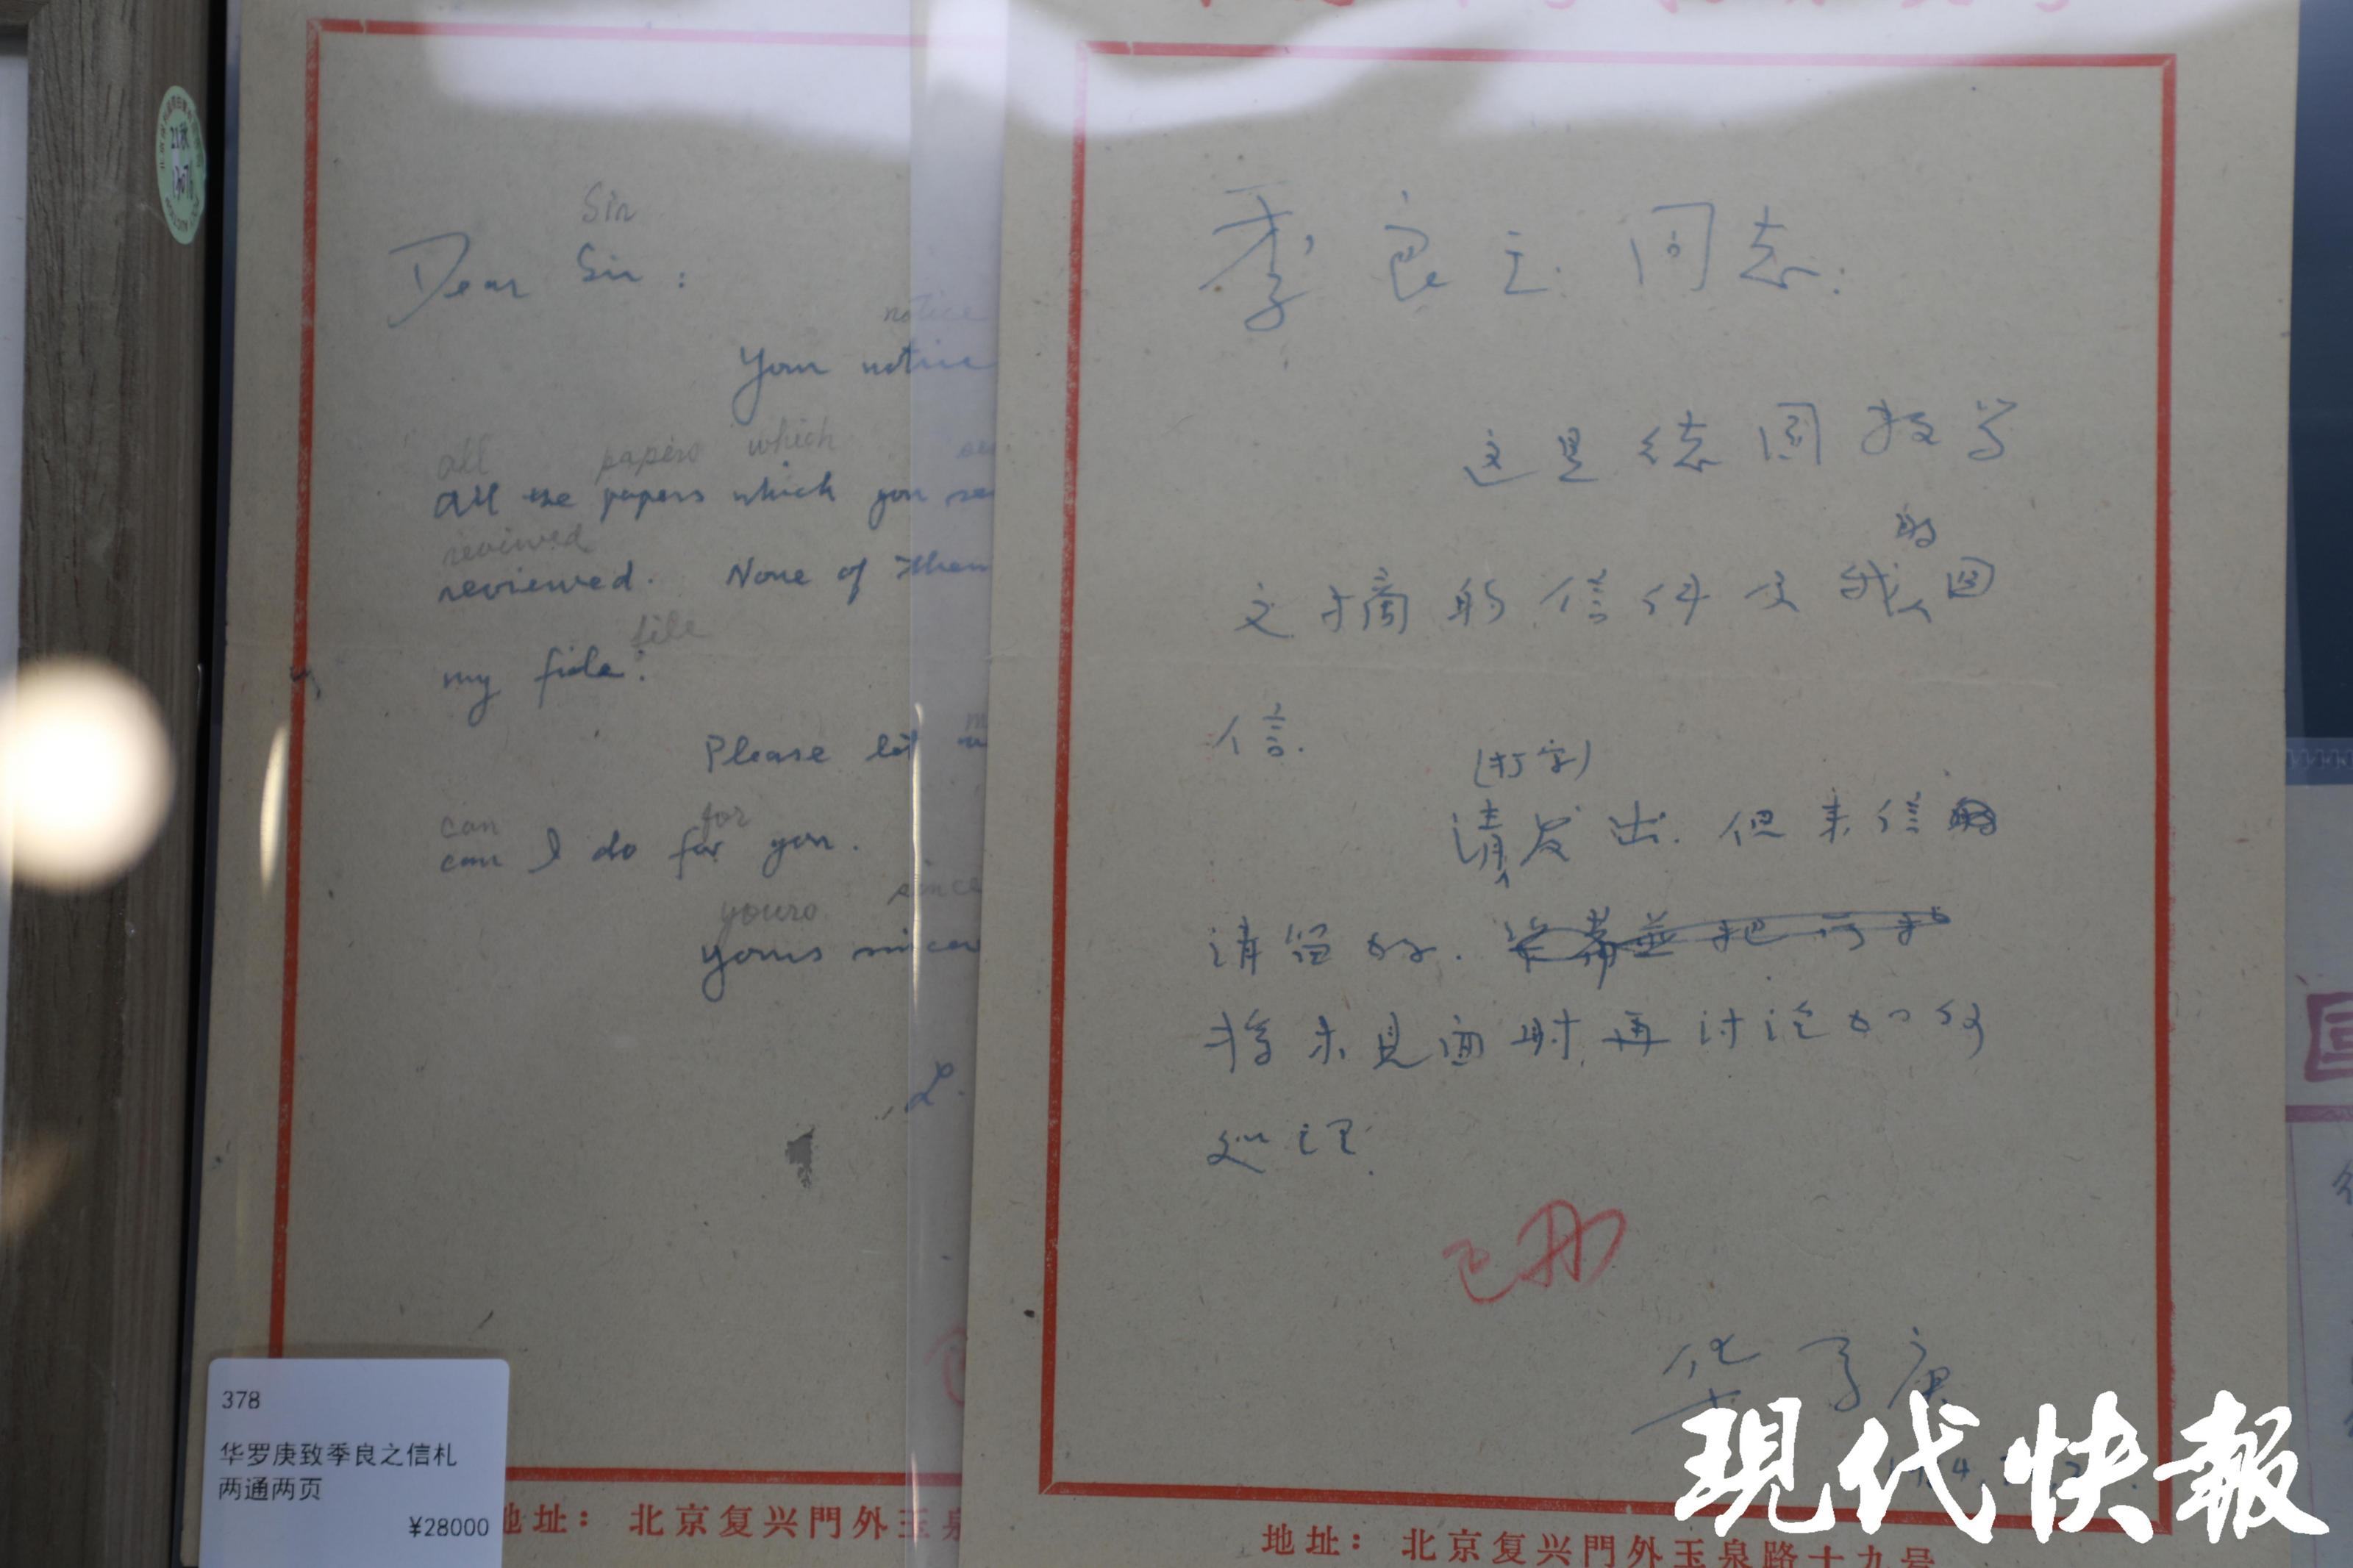 Sin
Dear Sir :
notice
Your notice
all papers which
all the papers which you se
reviewed
reviewed. None of them
file
my fiole.
Please let
can for
can I do for you.
yours since
yours sincer
L.
季良之同志:
这是德国数学
的
文摘的信件及我回
信.
(打字)
请发出.但来信
请留好.
将来见面时再讨论如何
处理.
已办
华罗庚
378
华罗庚致季良之信札
两通两页
¥28000
地址: 北京复兴門外玉泉
地址: 北京复兴門外玉泉路十九号
现代快報